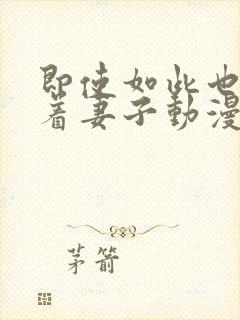 即使如此也
着妻子動漫
茅箭